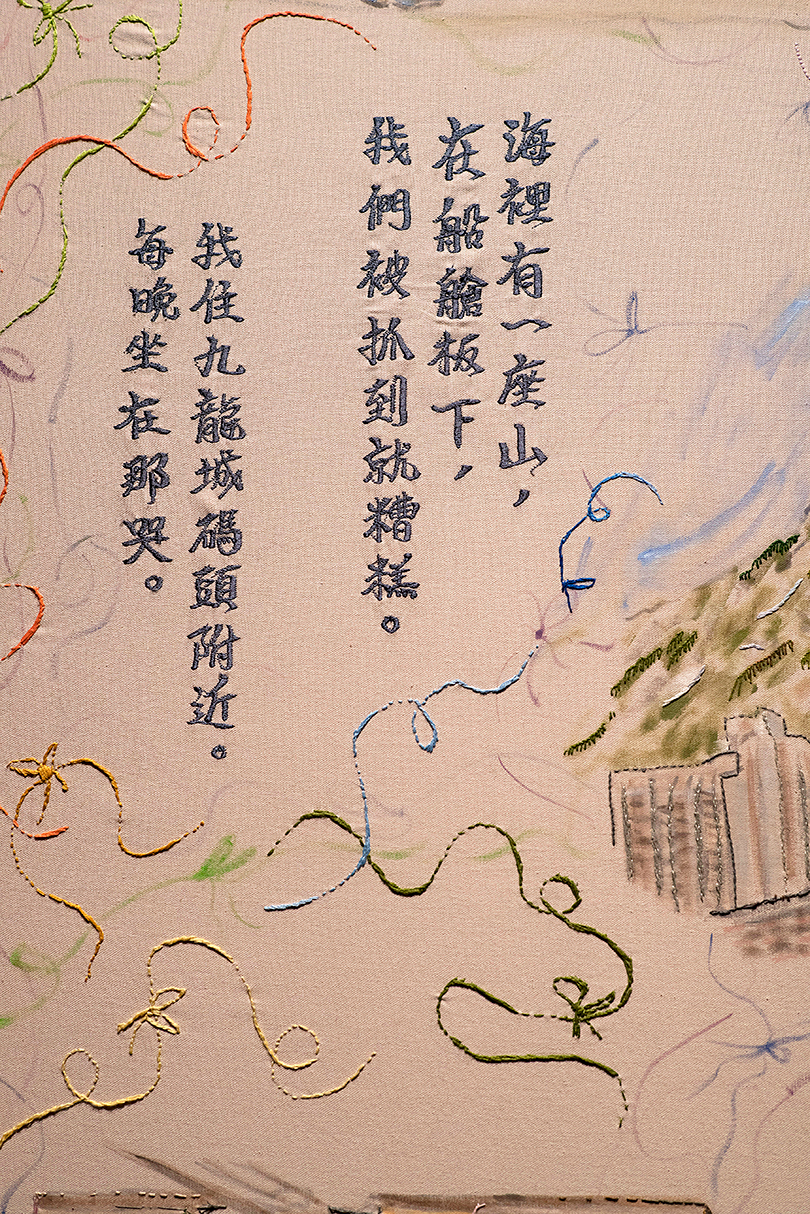 海裡有一座山，
在船艙板下，
我們被抓到就糟糕。
我住九龍城碼頭附近。
每晚坐在那哭。